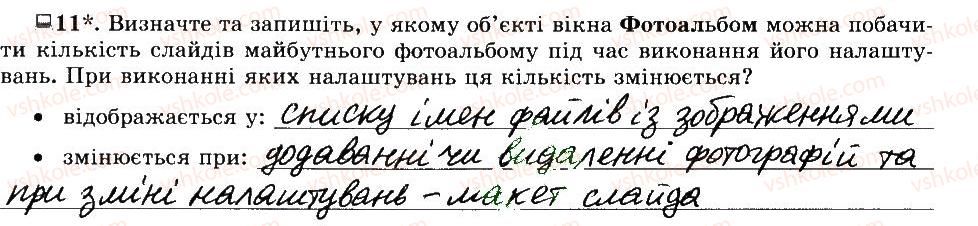 11*. Визначте та запишіть, у якому об’єкті вікна Фотоальбом можна побачи-
ти кількість слайдів майбутнього фотоальбому під час виконання його налашту-
вань. При виконанні яких налаштувань ця кількість змінюється?
• відображається у: списку імен файлів із зображеннями
• змінюється при: додаванні чи видаленні фотографій та
при зміні налаштувань – макет слайда